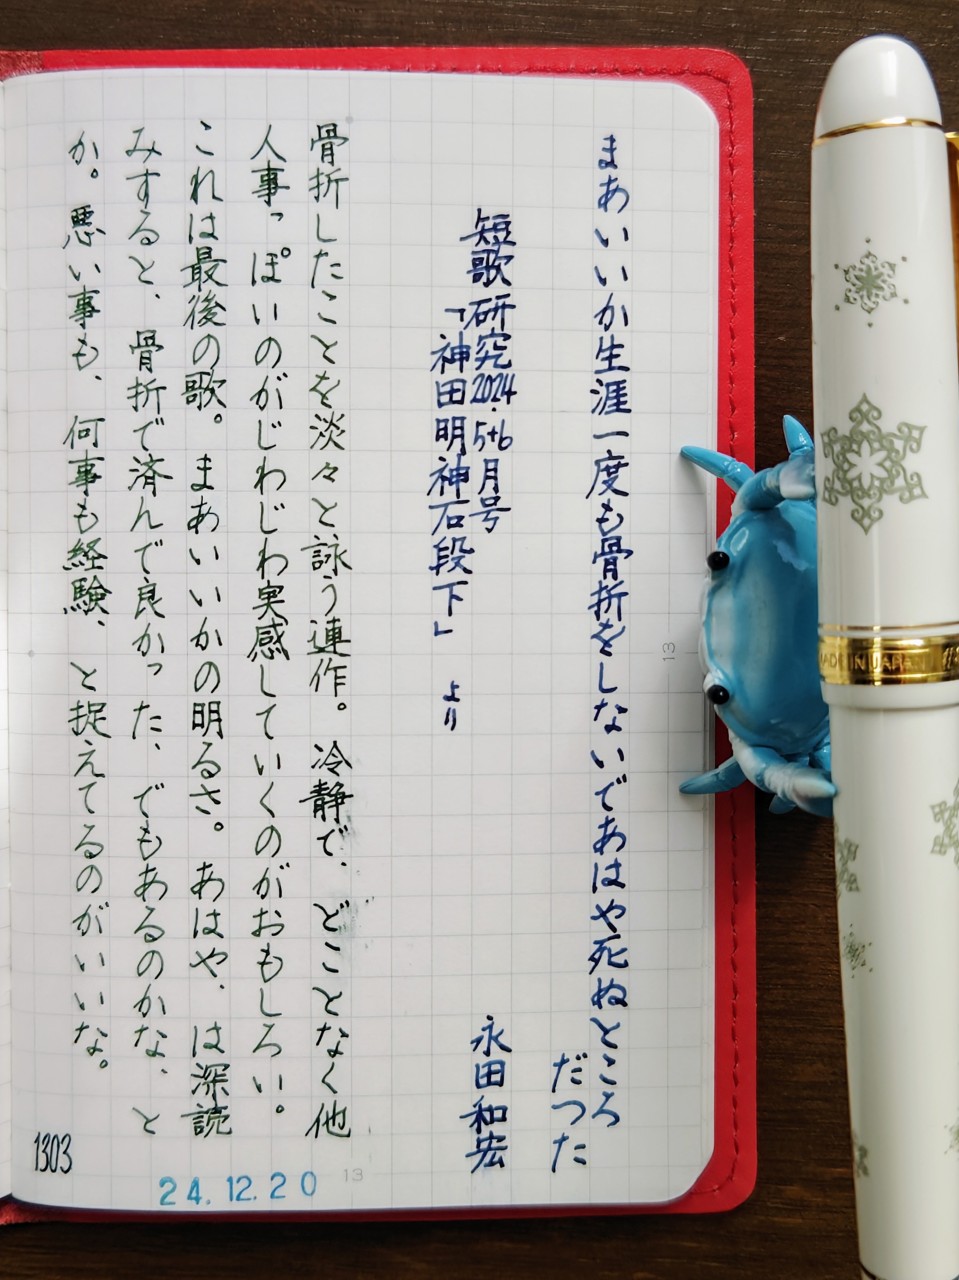 まあいいか生涯一度も骨折をしないであはや死ぬところ
だつた
短歌研究2024.5+6月号
「神田明神石段下」より
永田和宏
骨折したことを淡々と詠う連作。冷静で、どことなく他
人事っぽいのがじわじわ実感していくのがおもしろい。
これは最後の歌。まあいいかの明るさ。あはや、は深読
みすると、骨折で済んで良かった、でもあるのかな、と
か。悪い事も、何事も経験、と捉えてるのがいいな。
1303
24.12.20
13
13
MADE IN JAPAN